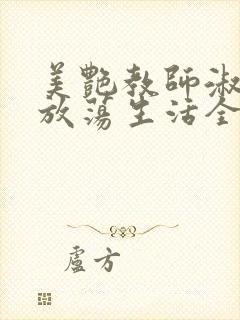 美艷教師淑
放蕩生活全
盧方